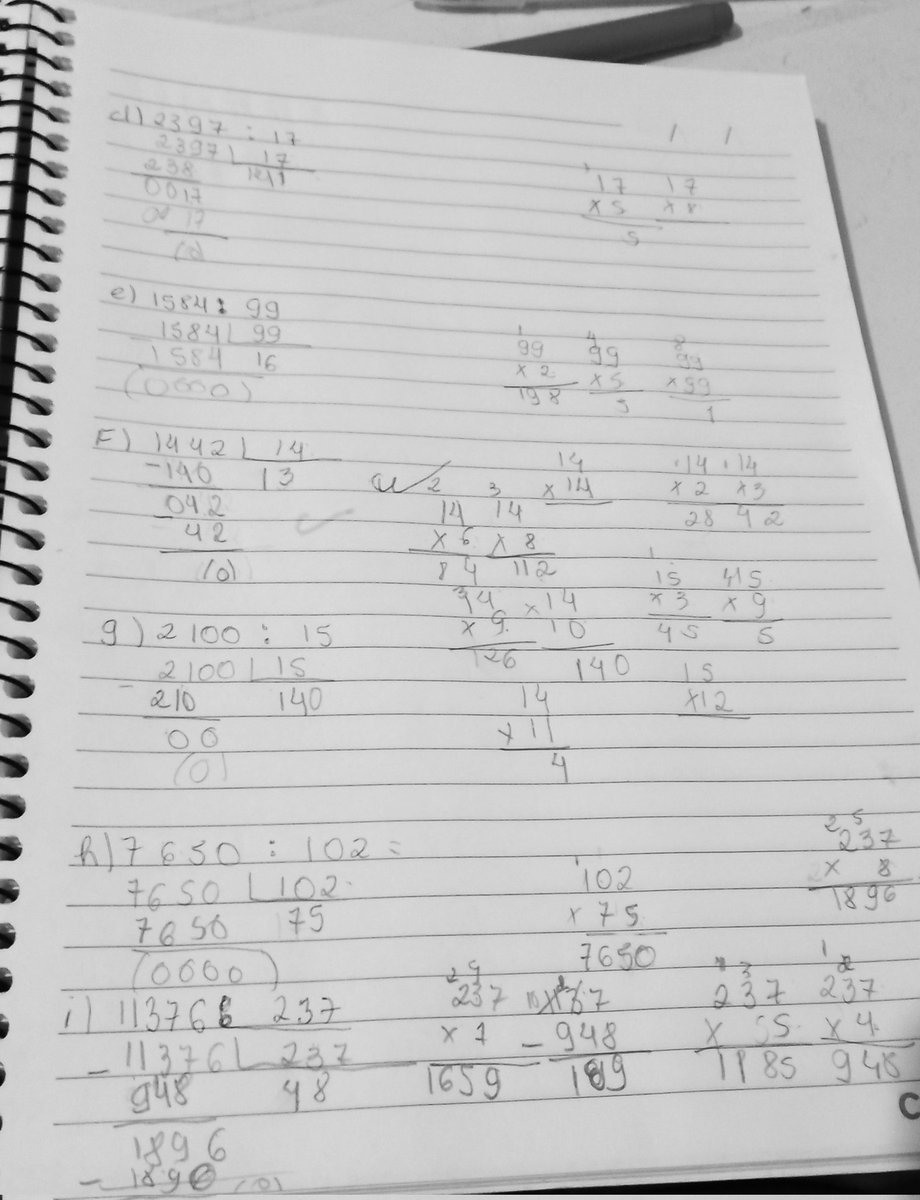 d) 2397 : 17
2397 17
238
0017
17
(0)
17 17
x 5 x 8
5
e) 1584 : 99
1584 99
1584 16
(0000)
99 99 99
x 2 x 5 x 99
198 5 1
F) 1442 14
-140 13
042
42
(0)
14 14 14
x 14 x 2 x 3
28 42
2 3
14 14
x 6 x 8
84 112
14
x 9 x 10
126 140
15 15
x 3 x 9
45 5
g) 2100 : 15
- 2100 15
210 140
00
(0)
14
x 11
4
15
x 12
h) 7650 : 102 =
7650 102
7650 75
(0000)
102
x 75
7650
2 5
237
x 8
1896
i) 11376 237
- 11376 237
948 48
1896
- 1896 (0)
237
x 7
1659
- 948
189
237 237
x 4
1185 948
C